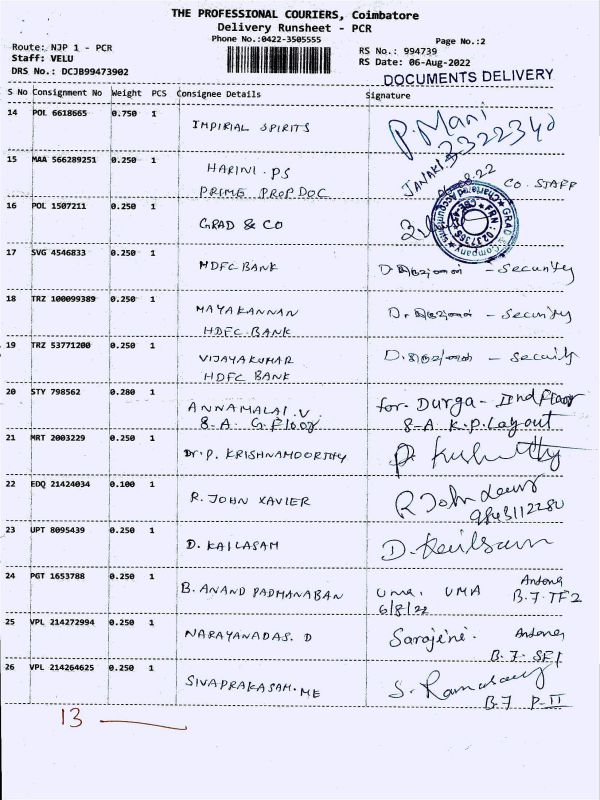 THE PROFESSIONAL COURIERS, Coimbatore
Delivery Runsheet - PCR
Phone No.:0422-3505555
Page No.:2
Route: NJP 1 - PCR
RS No.: 994739
Staff: VELU
RS Date: 06-Aug-2022
DRS No.: DCJB99473902
DOCUMENTS DELIVERY
S No Consignment No Weight PCS Consignee Details Signature
14 POL 6618665 0.750 1 IMPIRIAL SPIRITS P. Mani
15 MAA 566289251 0.250 1 HARINI. PS JANAKI
PRIME PROP DOC CO. STAFF
16 POL 1507211 0.250 1 GRAD & CO
GRAD & Company
Chartered Accountants
17 SVG 4546833 0.250 1 HDFC BANK - Security
18 TRZ 100099389 0.250 1 MAYAKANNAN - Security
HDFC BANK
19 TRZ 53771200 0.250 1 VIJAYAKUMAR - Security
HDFC BANK
20 STY 798562 0.280 1 ANNAMALAI. V for. Durga - IInd Floor
8-A G. Floor 8-A K.P. Layout
21 MRT 2003229 0.250 1 Dr. P. KRISHNAMOORTHY
22 EDQ 21424034 0.100 1 R. JOHN XAVIER R John
23 UPT 8095439 0.250 1 D. KAILASAM D. Kailasam
24 PGT 1653788 0.250 1 B. ANAND PADMANABAN Uma. UMA
6/8/22 B.7. TF2
25 VPL 214272994 0.250 1 NARAYANADAS. D Sarojini.
B.7. SF1
26 VPL 214264625 0.250 1 SIVAPRAKASAM. ME S. Ramasamy
B.7 P-II
13